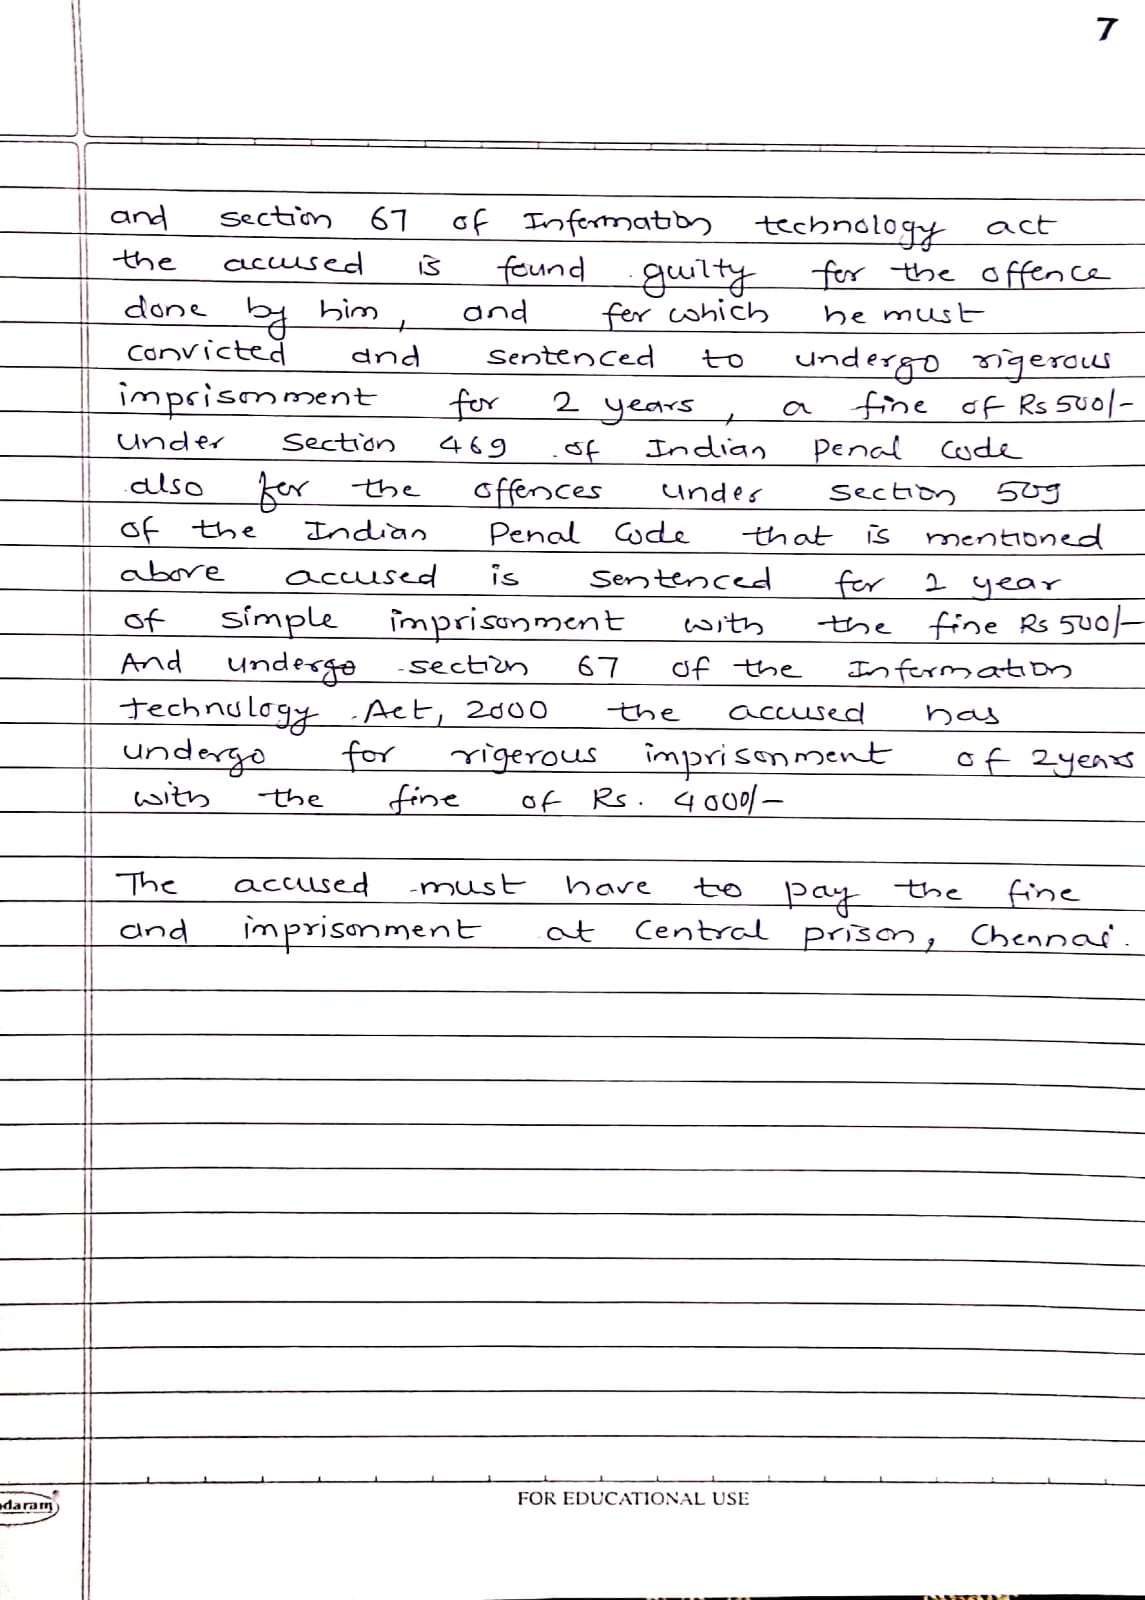 7
and section 67 of Information technology act
the accused is found guilty for the offence
done by him, and for which he must
convicted and sentenced to undergo rigerous
imprisonment for 2 years, a fine of Rs 500/-
under section 469 of Indian Penal Code
also for the offences under section 509
of the Indian Penal Code that is mentioned
above accused is sentenced for 1 year
of simple imprisonment with the fine Rs 500/-
And undergo section 67 of the Information
technology Act, 2000 the accused has
undergo for rigerous imprisonment of 2 years
with the fine of Rs. 4000/-
The accused must have to pay the fine
and imprisonment at Central prison, Chennai.
daram
FOR EDUCATIONAL USE